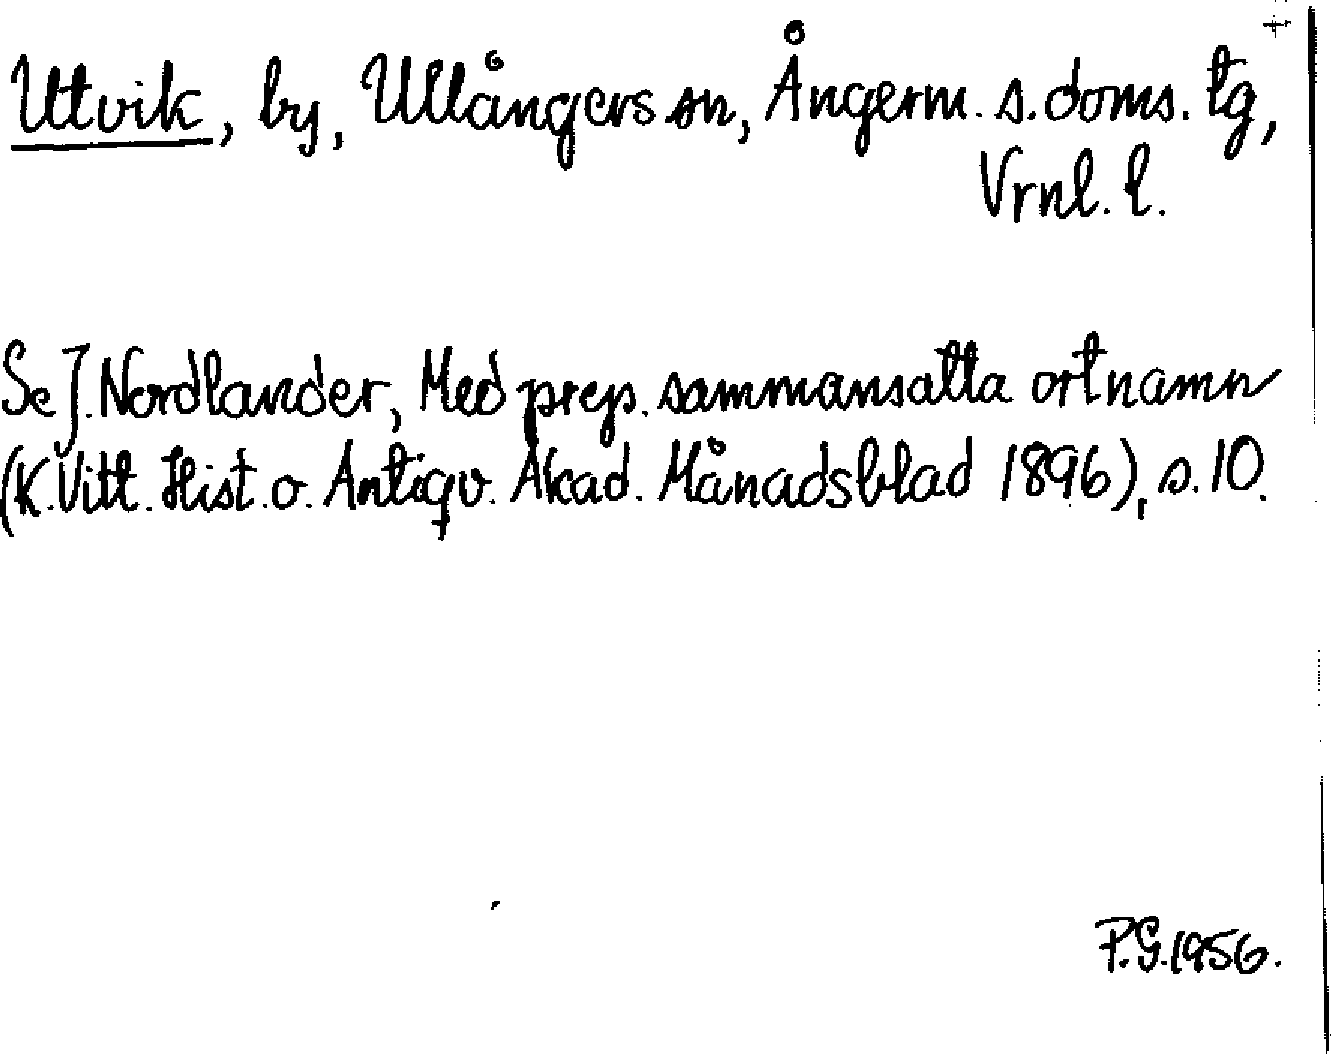 Utvik, by, Ullångers sn, Ångerm. s. doms. tg,
Vrnl. l.
Se J. Nordlander, Med prep. sammansatta ortnamn
(K. Vitt. Hist. o. Antiqv. Akad. Månadsblad 1896), s. 10.
P.G. 1956.